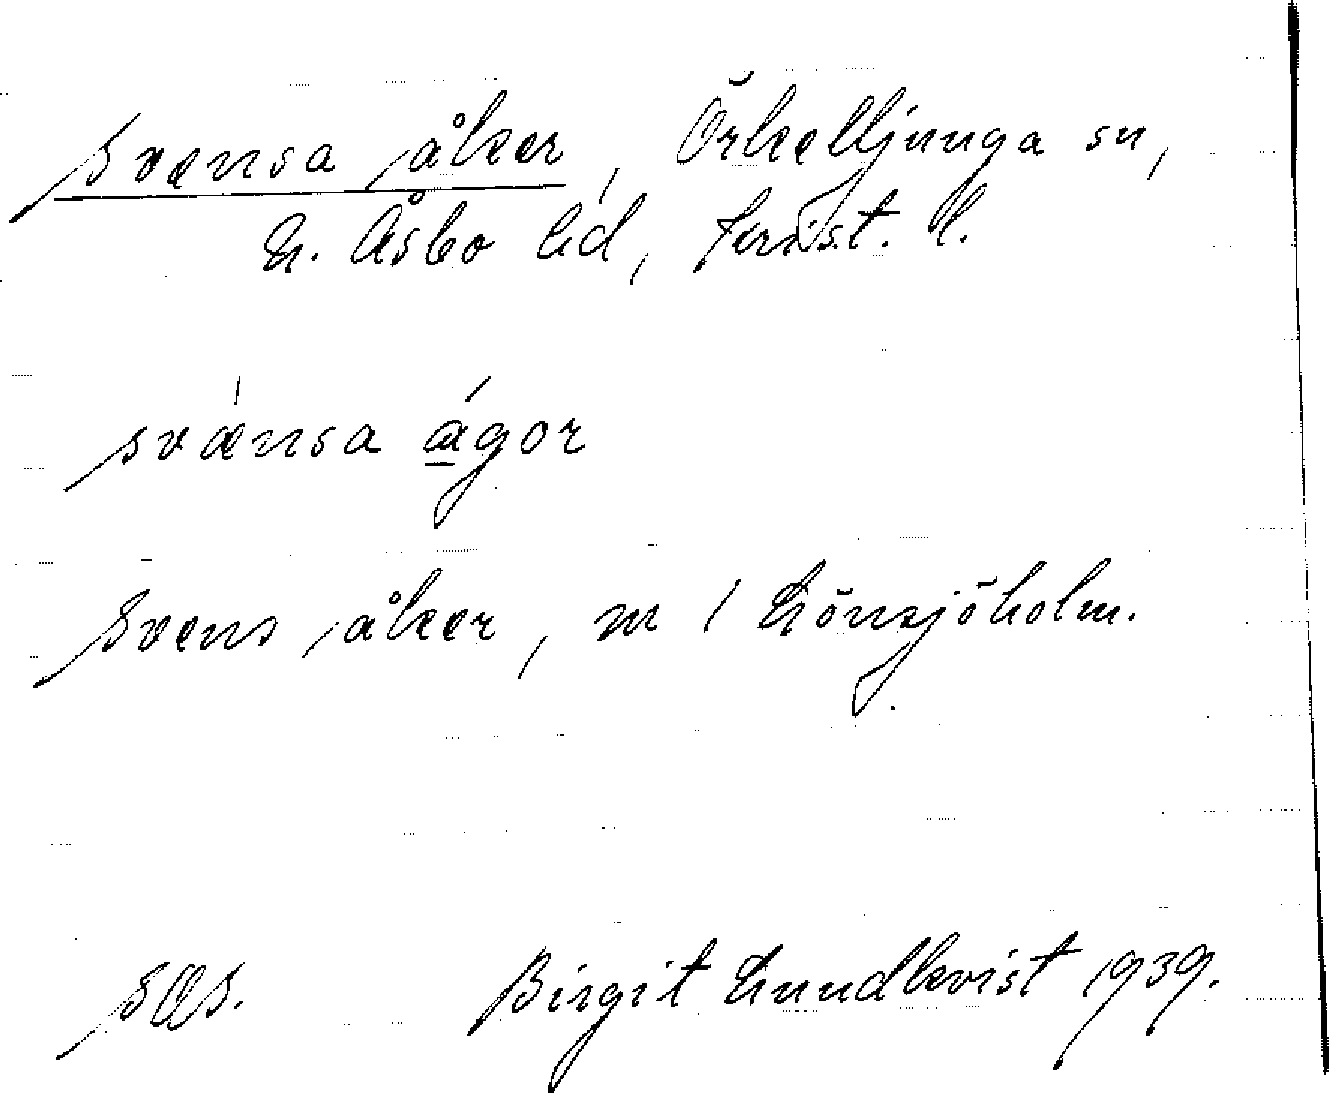 Svensa åker, Örkelljunga sn,
N. Åsbo hd, Krist. l.
svánsa ágor
Svens åker, m / Lönsjöholm.
SOS. Birgit Lundkvist 1939.